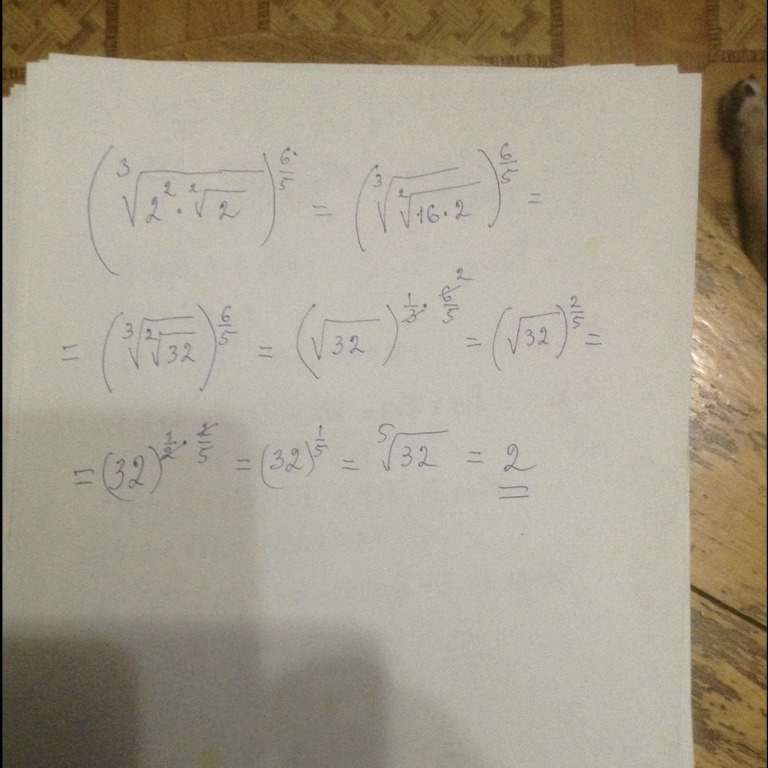 (∛(2² · ²√2))^(6/5) = (∛(²√(16·2)))^(6/5) =
= (∛(²√32))^(6/5) = (√32)^(1/3 · 6/5 2) = (√32)^(2/5) =
= (32)^(1/2 · 2/5) = (32)^(1/5) = ⁵√32 = 2